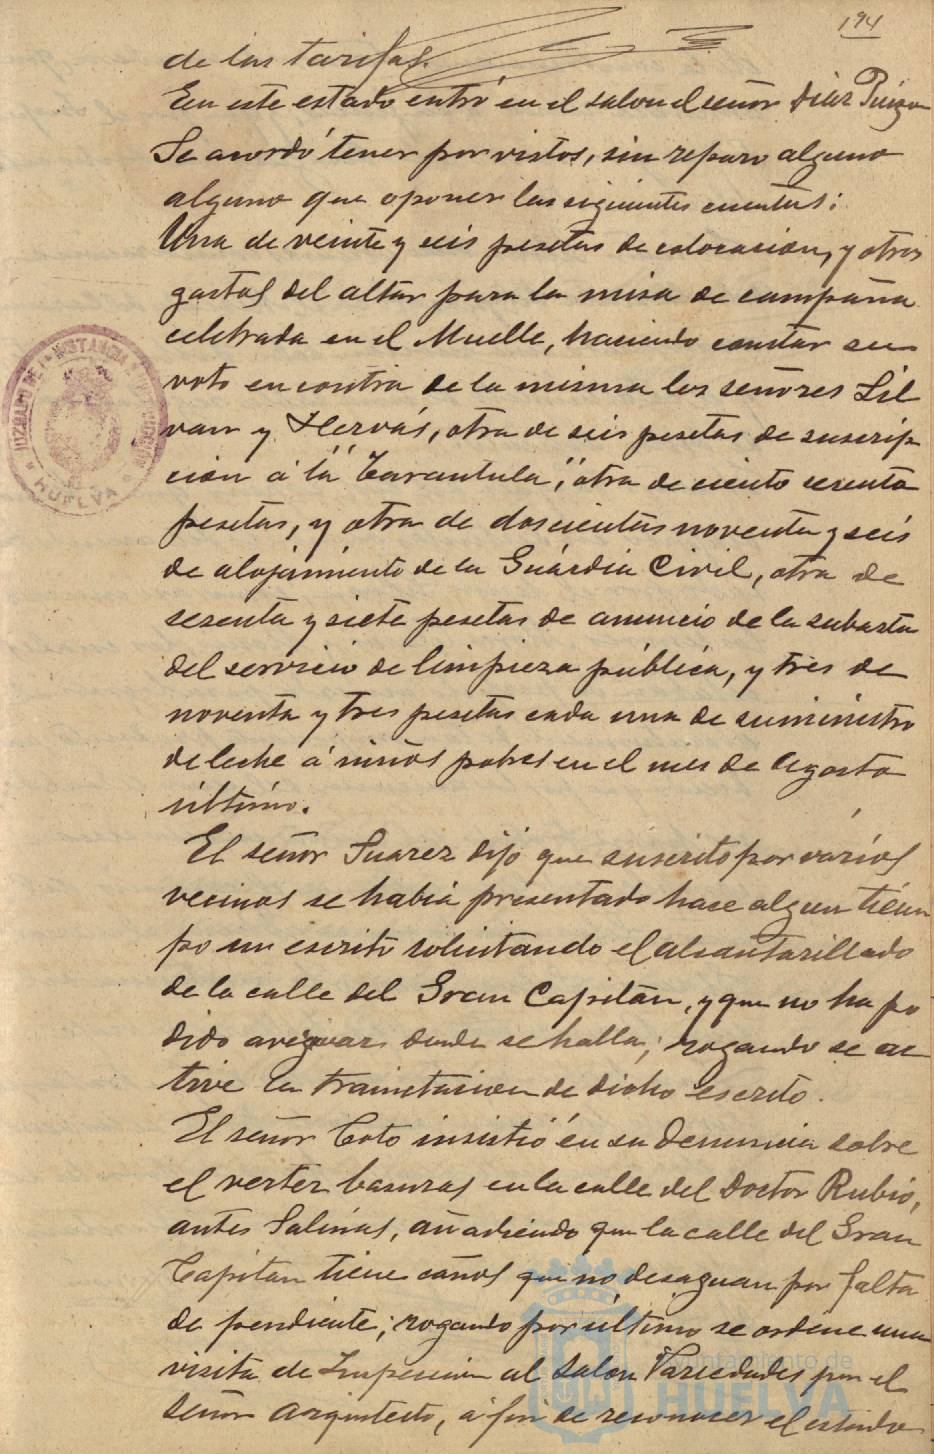 194
de las tarifas.
En este estado entró en el salon el señor Diaz Pinzon
Se acordó tener por vistos, sin reparo alguno
alguno que oponer las siguientes cuentas:
Una de veinte y seis pesetas de colocacion, y otros
gastos del altar para la misa de campaña
celebrada en el Muelle, haciendo constar su
voto en contra de la misma los señores Sil
van y Hervás, otra de seis pesetas de suscrip
cion á la "Tarantula", otra de ciento sesenta
pesetas, y otra de doscientas noventa y seis
de alojamiento de la Guardia Civil, otra de
sesenta y siete pesetas de anuncio de la subasta
del servicio de limpieza pública, y tres de
noventa y tres pesetas cada una de suministro
de leche á niños pobres en el mes de Agosto
último.
El señor Suarez dijo que suscrito por varios
vecinos se habia presentado hace algun tiem
po un escrito solicitando el alcantarillado
de la calle del Gran Capitán, y que no ha po
dido averiguar donde se halla; rogando se ac
tive la tramitacion de dicho escrito.
El señor Coto insistió en su denuncia sobre
el verter basuras en la calle del Doctor Rubio,
antes Salinas, añadiendo que la calle del Gran
Capitan tiene caños que no desaguan por falta
de pendiente; rogando por último se ordene una
visita de Inspeccion al Salon Variedades por el
señor Arquitecto, á fin de reconocer el estado
JUZGADO DE 1ª INSTANCIA E INSTRUCCION
HUELVA
Ayuntamiento de
HUELVA